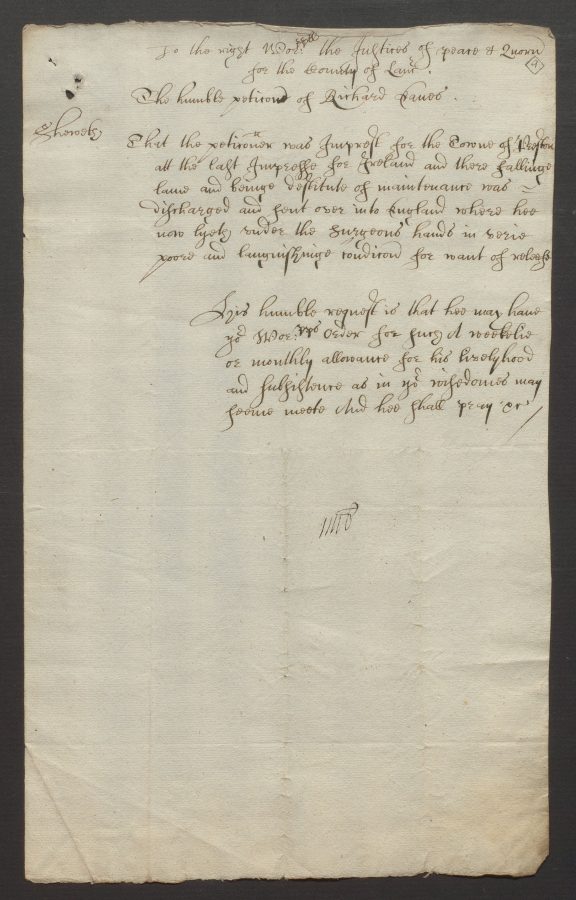 To the right Wor:ssll the Justices of peace & Quoru
4
for the County of Lanc.
The humble peticon of Richard Eaues.
Sheweth
That the peticoner was Imprest for the Towne of Preston
att the last Impresse for Ireland and there fallinge
lame and beinge destitute of maintenance was
discharged and sent over into England where hee
now lyeth vnder the Surgeons hands in verie
poore and languishinge condicon for want of releefe
His humble request is that hee may have
yor Wor:pps Order for such A weekelie
or monthly allowance for his livelyhood
and subsistence as in yor wisedomes may
seeme meete And hee shall pray &c
iiiid